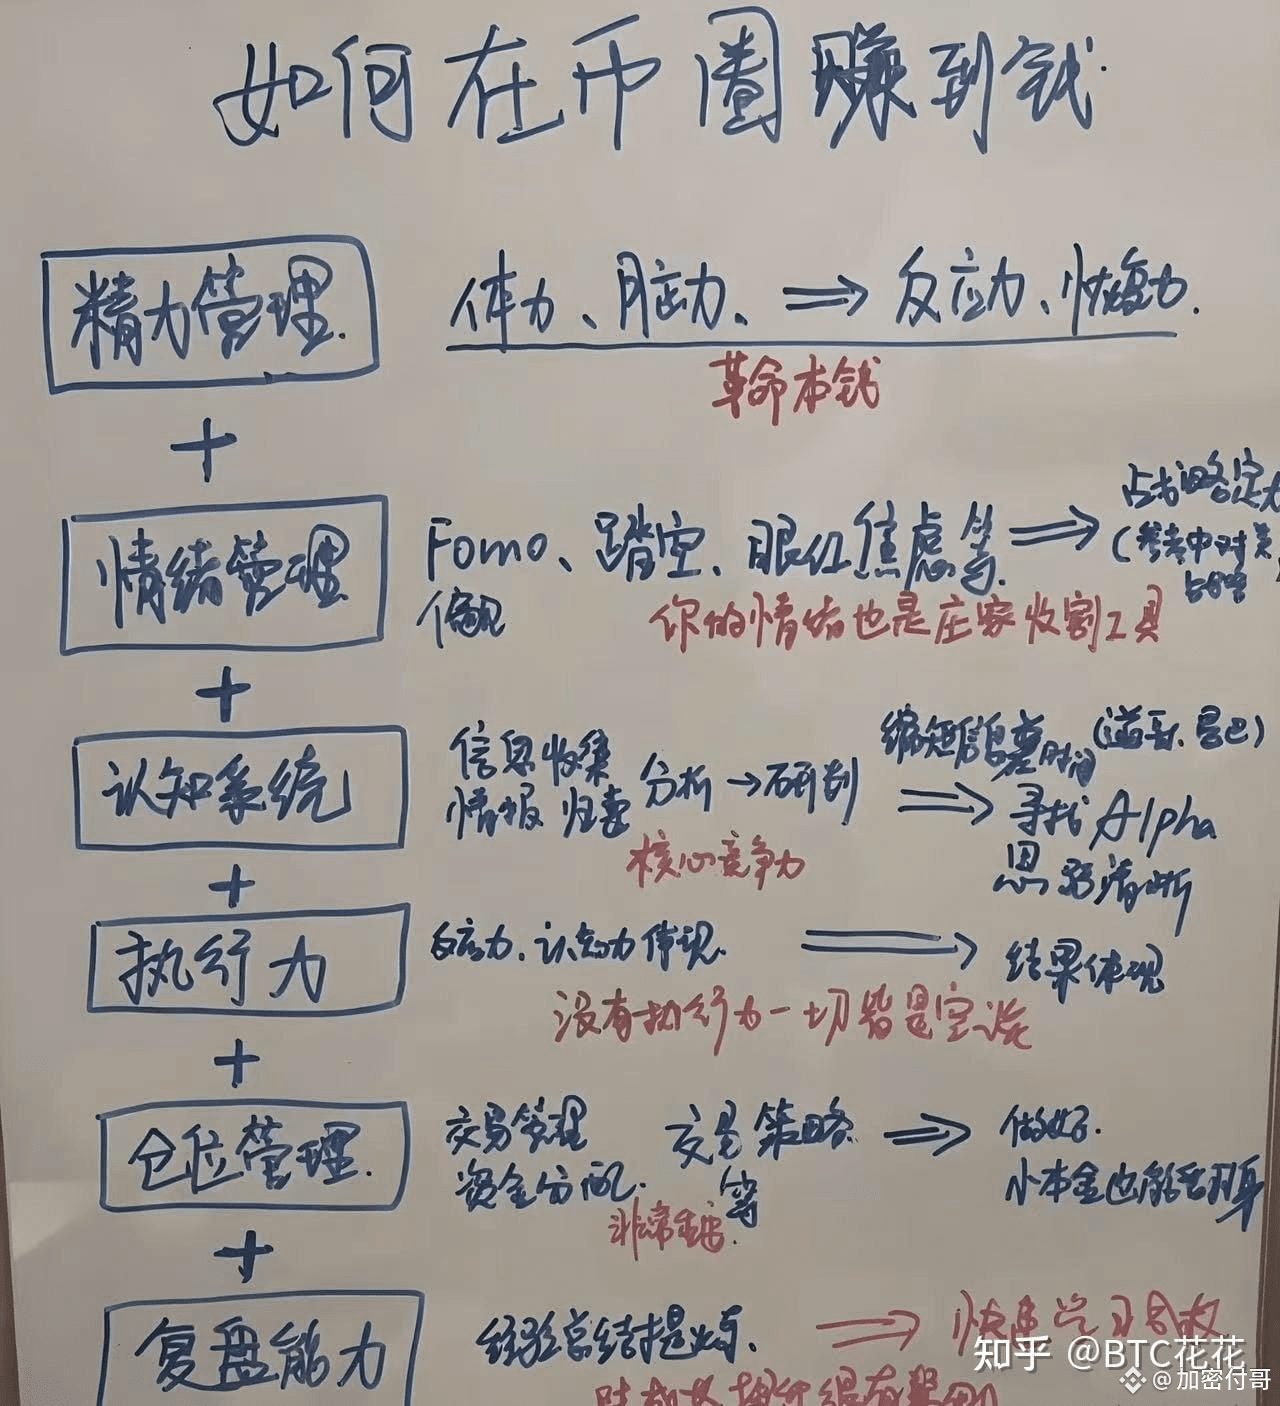 如何在币圈赚到钱.
精力管理.
体力、脑力、⇒反应力、恢复力.
革命本钱
+
情绪管理
Fomo、踏空、眼红焦虑等.⇒
占战略定
(参考中对美
偏见
你的情绪也是庄家收割工具
+
认知系统
信息收集
情报归类
分析→研判
⇒
缩短信息差时间
寻找Alpha
思路清晰
核心竞争力
+
执行力
反应力、认知力体现.⇒结果体现
没有执行力一切皆是空谈
+
仓位管理.
交易管理
资金分配.
交易策略
等
⇒
做好.
小本金也能活翻身
非常重要.
+
复盘能力
经验总结提炼.⇒快速学习
知乎 @BTC花花
@加密付哥